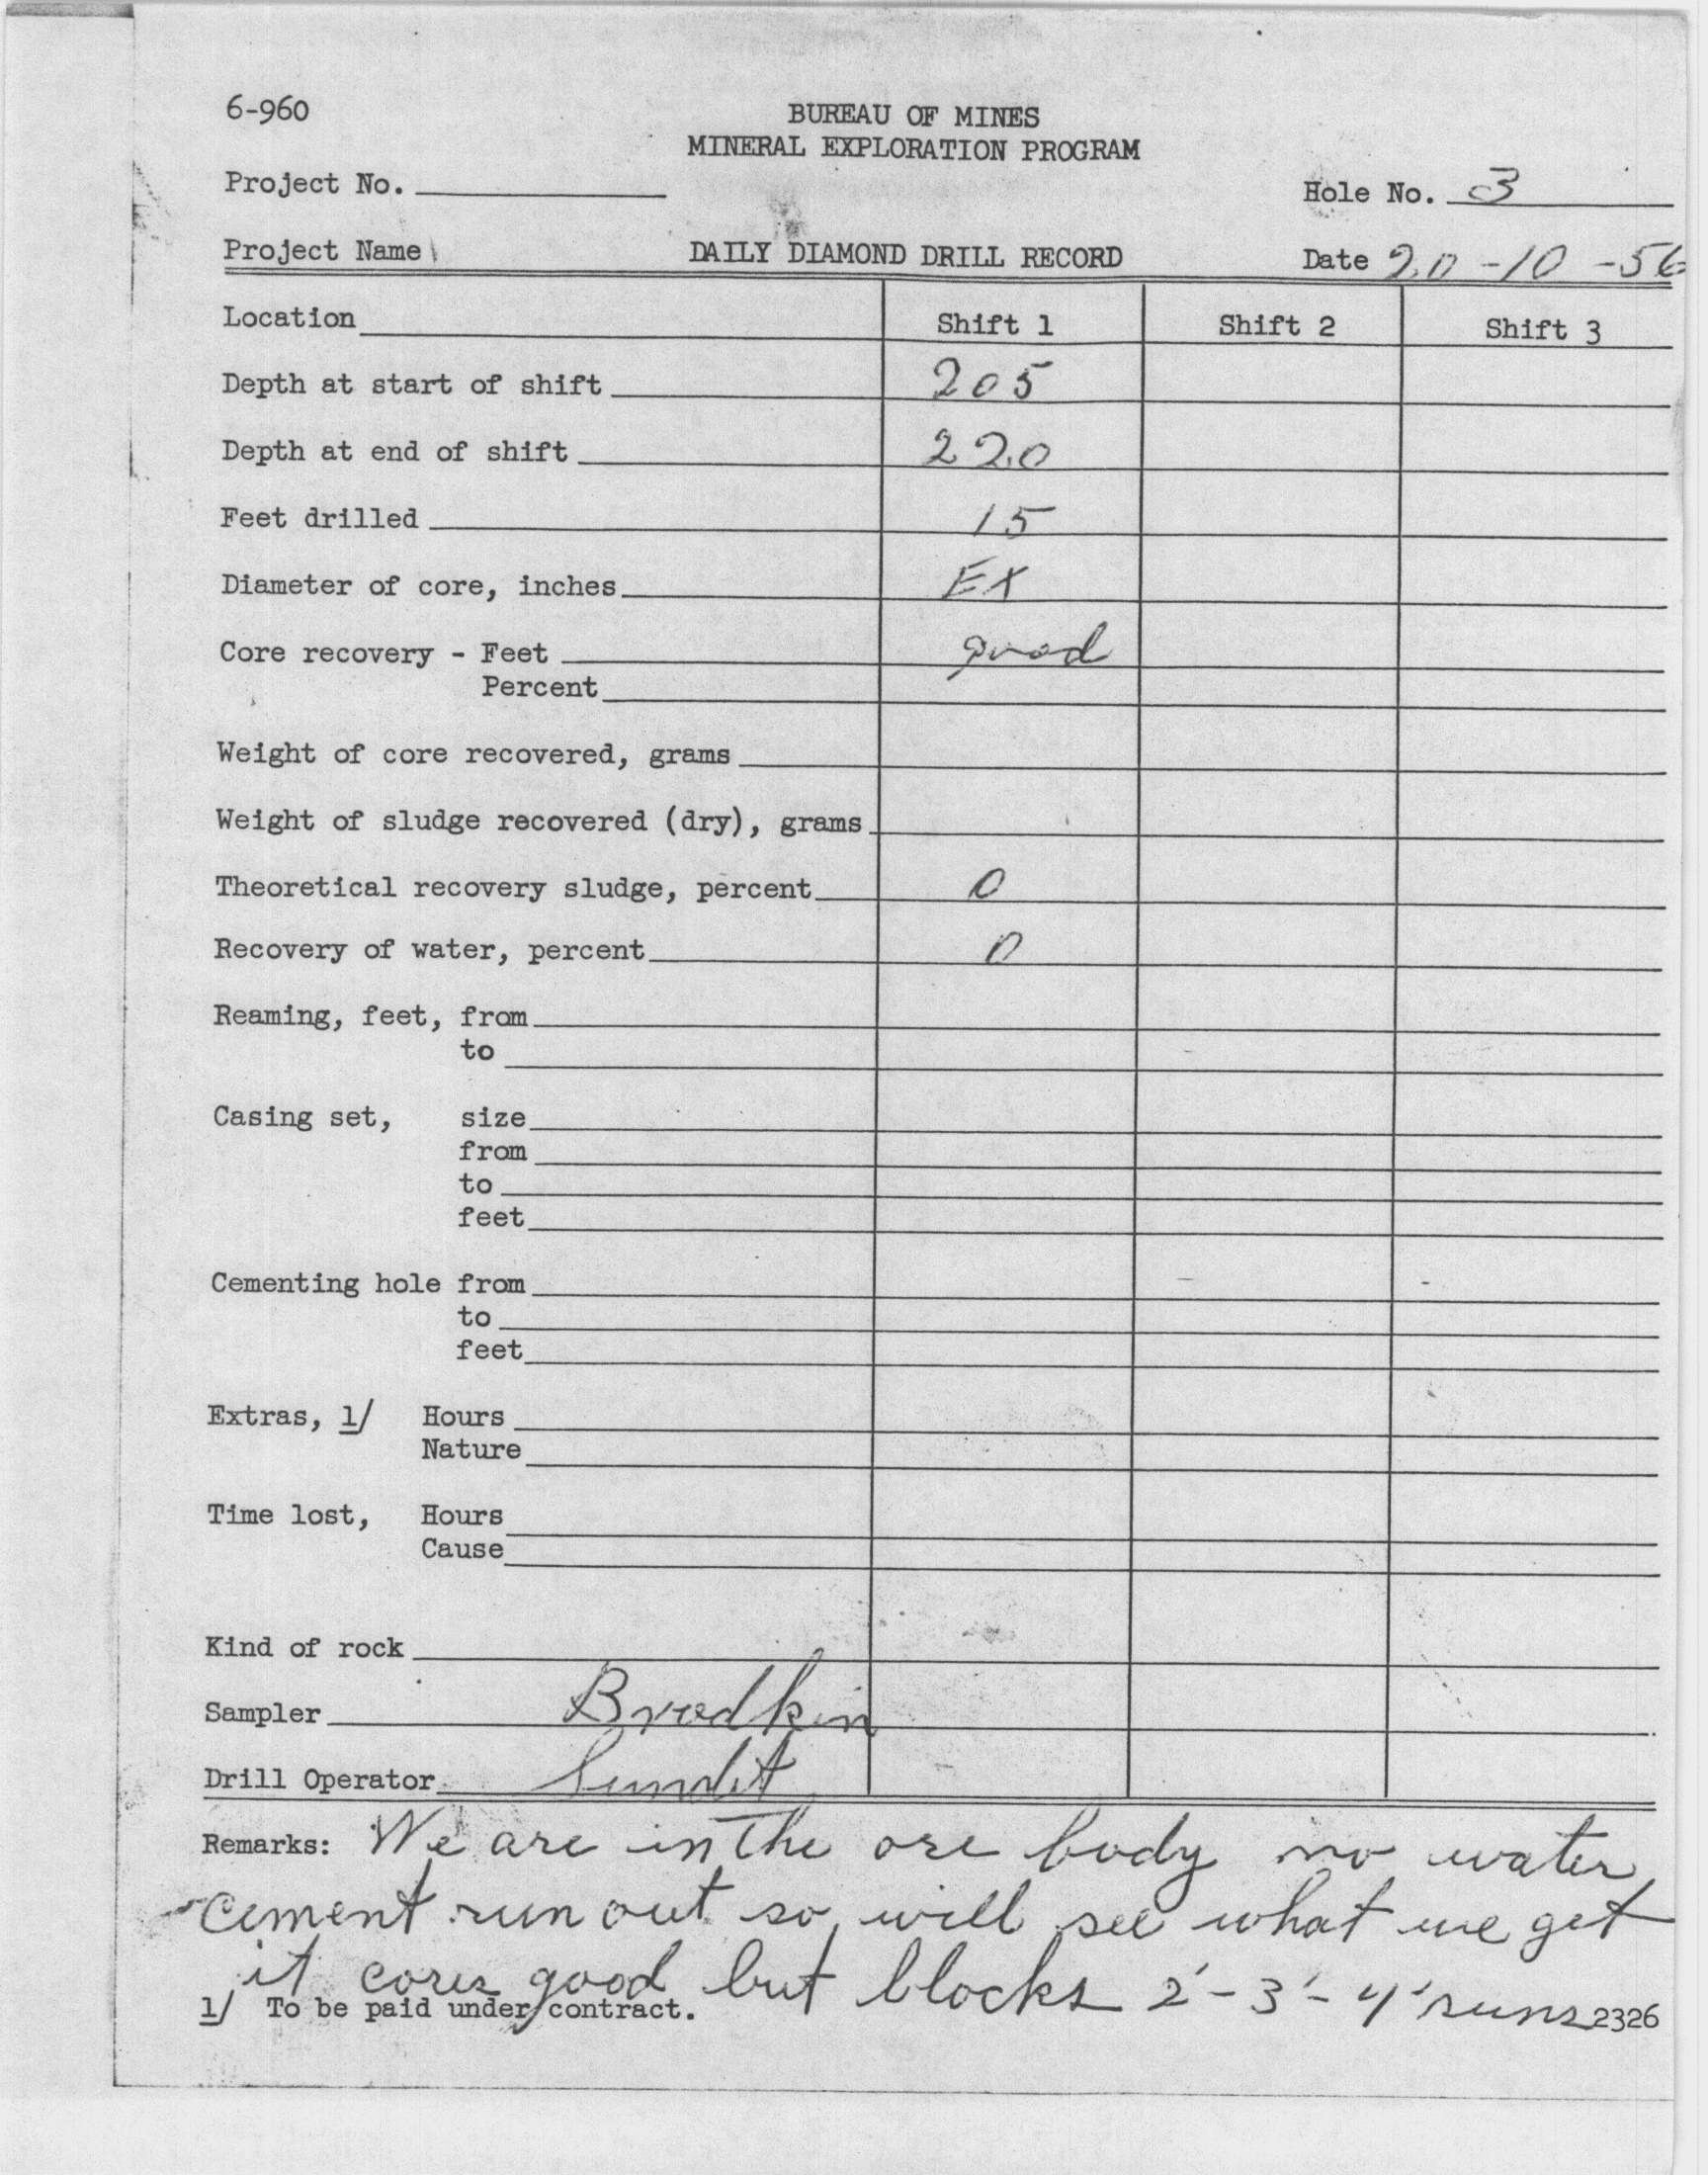 6-960
BUREAU OF MINES
MINERAL EXPLORATION PROGRAM
Project No.
Hole No. 3
Project Name
DAILY DIAMOND DRILL RECORD
Date 20-10-56
Location Shift 1 Shift 2 Shift 3
Depth at start of shift 205
Depth at end of shift 220
Feet drilled 15
Diameter of core, inches EX
Core recovery - Feet good
Percent
Weight of core recovered, grams
Weight of sludge recovered (dry), grams
Theoretical recovery sludge, percent 0
Recovery of water, percent 0
Reaming, feet, from
to
Casing set, size
from
to
feet
Cementing hole from
to
feet
Extras, 1/ Hours
Nature
Time lost, Hours
Cause
Kind of rock
Sampler Brodkin
Drill Operator
Remarks: We are in the ore body no water
cement run out so will see what we get
it cores good but blocks 2'-3'-4' runs
1/ To be paid under contract.
2326